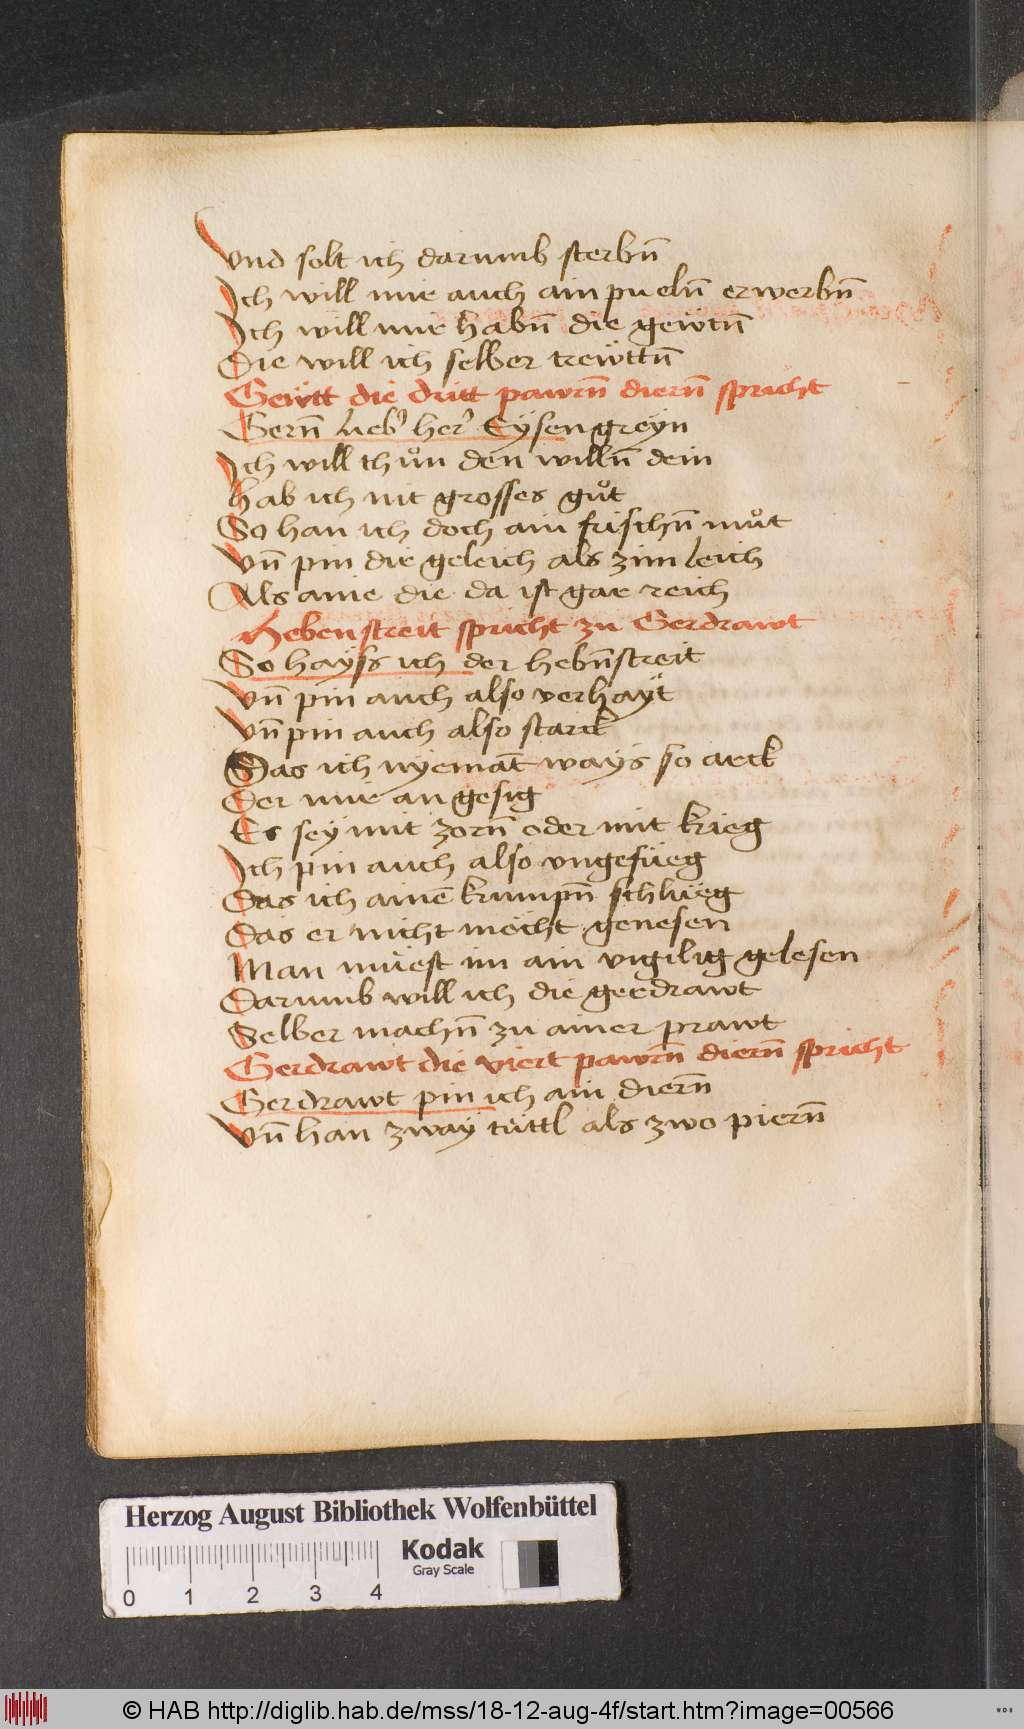 Vnd solt ich darumb sterbn̄
Ich will mir auch ain pueln̄ erwerbn̄
Ich will mir habn̄ die gewtn̄
Die will ich selber trewttn̄
Gewtt die dritt pawrn̄ diern̄ spricht
Gern̄ lieb' her' Eysengreyn
Ich will thůn den willn̄ dein
Hab ich nit grosses gůt
So han ich doch ain frischn̄ můt
Vn̄ pin dir geleich als zimleich
Als aine die da ist gar reich
Hebenstreit spricht zu Gerdrawt
So hayss ich der hebn̄streit
Vn̄ pin auch also verhayt
Vn̄ pin auch also starck
Das ich nyemāt ways so arck
Der mir an gesig
Es sey mit zorn̄ oder mit krieg
Ich pin auch also vngefüeg
Das ich ainē krumpn̄ schlüeg
Das er nicht möcht genesen
Man müest im ain vigilig gelesen
Darumb will ich die gerdrawt
Selber machn̄ zu ainer prawt
Gerdrawt die viert pawrn̄ diern̄ spricht
Gerdrawt pin ich ain diern̄
Vn̄ han zway tüttl als zwo piern̄
Herzog August Bibliothek Wolfenbüttel
Kodak
Gray Scale
0 1 2 3 4
© HAB http://diglib.hab.de/mss/18-12-aug-4f/start.htm?image=00566